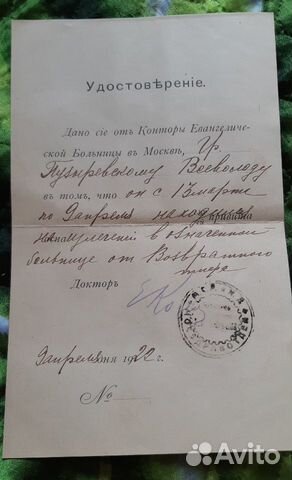 Удостовѣреніе.
Дано сіе отъ Конторы Евангеличе-
ской Больницы въ Москвѣ, Гр.
Пузыревскому Всеволоду
въ томъ, что он с 13 марта
по 9 апреля находился
на излечении в означенной
больнице от Возвратного
тифа
Докторъ
9 апреля дня 1922 г.
№
Avito